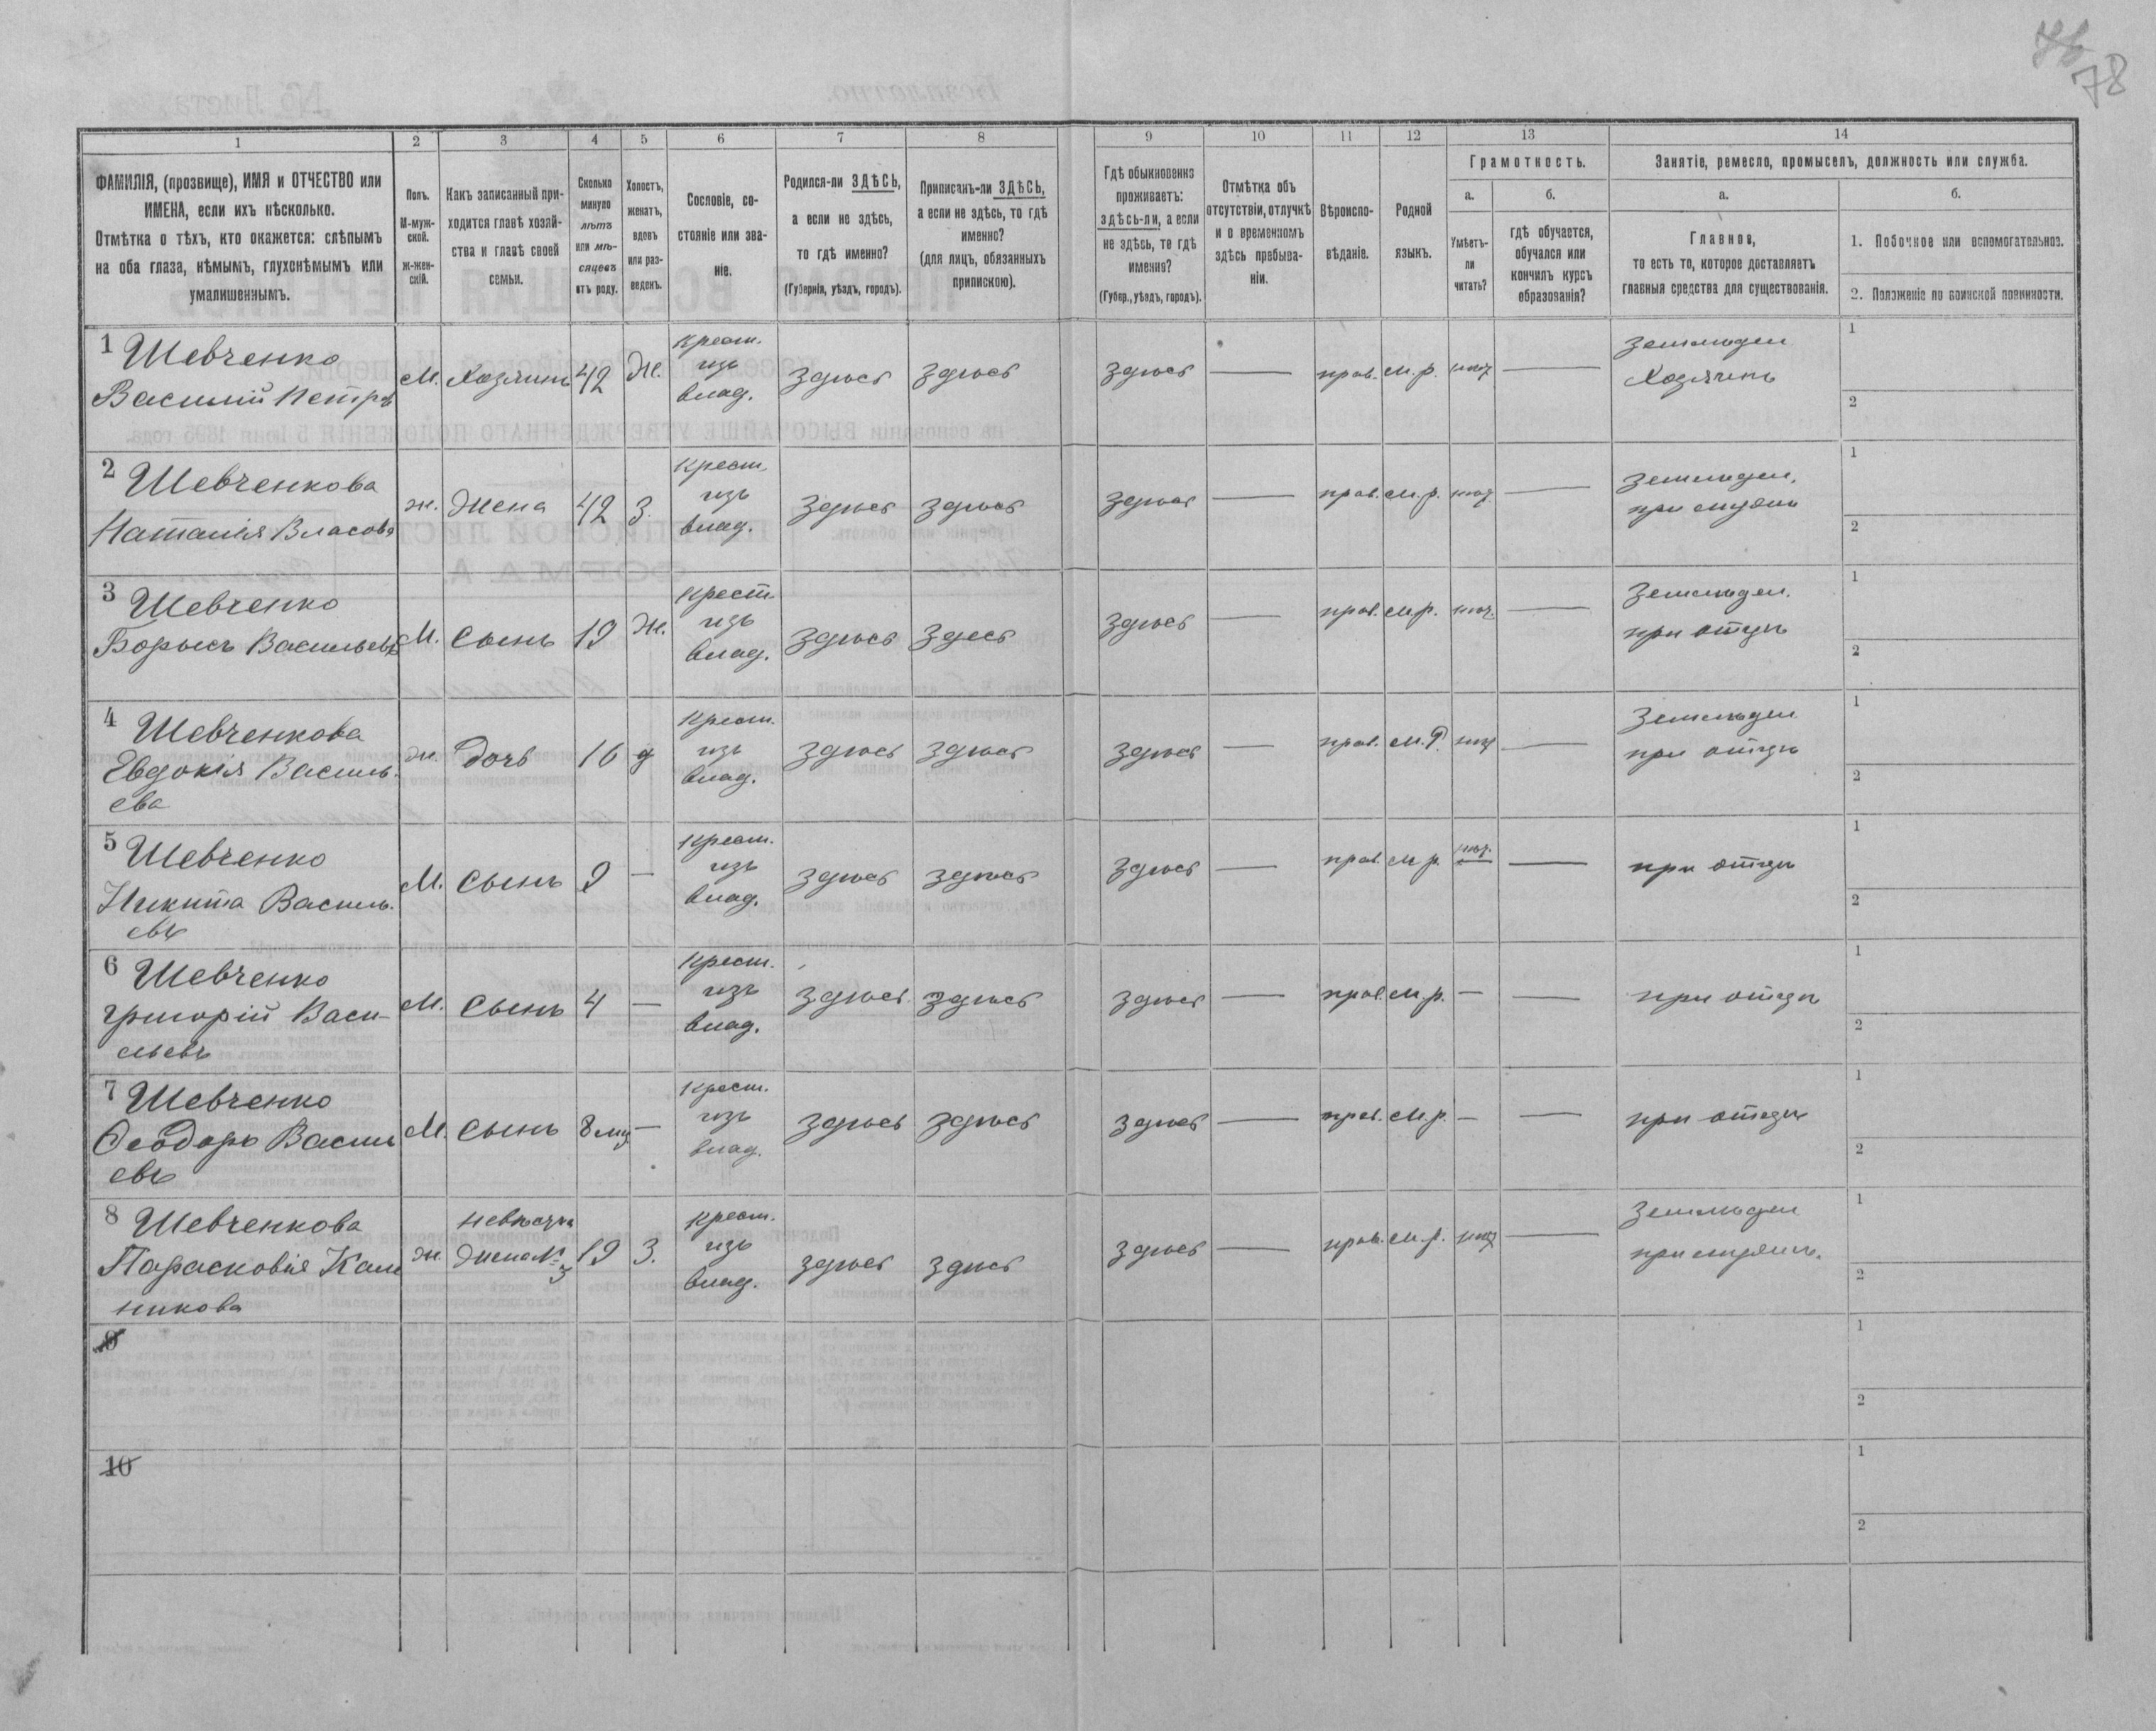 78
1
2
3
4
5
6
7
8
9
10
11
12
13
14
ФАМИЛІЯ, (прозвище), ИМЯ и ОТЧЕСТВО или
ИМЕНА, если ихъ нѣсколько.
Отмѣтка о тѣхъ, кто окажется: слѣпымъ
на оба глаза, нѣмымъ, глухонѣмымъ или
умалишеннымъ.
Полъ.
М-муж-
ской.
ж-жен-
скій.
Какъ записанный при-
ходится главѣ хозяй-
ства и главѣ своей
семьи.
Сколько
минуло
лѣтъ
или мѣ-
сяцевъ
отъ роду.
Холостъ,
женатъ,
вдовъ
или раз-
веденъ.
Сословіе, со-
стояніе или зва-
ніе.
Родился-ли ЗДѢСЬ,
а если не здѣсь,
то гдѣ именно?
(Губернія, уѣздъ, городъ).
Приписанъ-ли ЗДѢСЬ,
а если не здѣсь, то гдѣ
именно?
(для лицъ, обязанныхъ
припискою).
Гдѣ обыкновенно
проживаетъ:
здѣсь-ли, а если
не здѣсь, то гдѣ
именно?
(Губер., уѣздъ, городъ).
Отмѣтка объ
отсутствіи, отлучкѣ
и о временномъ
здѣсь пребыва-
ніи.
Вѣроиспо-
вѣданіе.
Родной
языкъ.
Грамотность.
а.
Умѣетъ-
ли
читать?
б.
гдѣ обучается,
обучался или
кончилъ курсъ
образованія?
Занятіе, ремесло, промыселъ, должность или служба.
а.
Главное,
то есть то, которое доставляетъ
главныя средства для существованія.
б.
1. Побочное или вспомогательное.
2. Положеніе по воинской повинности.
1 Шевченко
Василій Петровъ
М. Хозяинъ 42 Ж.
Крест.
изъ
влад.
здѣсь здѣсь здѣсь — прав. М.р. —
Земледѣл.
Хозяинъ
1
2
2 Шевченкова
Наталія Власова
ж. Жена 42 З.
Крест.
изъ
влад.
здѣсь здѣсь здѣсь — прав. М.р. —
Земледѣл.
при мужѣ
1
2
3 Шевченко
Борысъ Васильевъ
М. Сынъ 19 Ж.
Крест.
изъ
влад.
здѣсь здесь здѣсь — прав. М.р. —
Земледѣл.
при отцѣ
1
2
4 Шевченкова
Евдокія Василь-
ева
ж. Дочь 16 д
Крест.
изъ
влад.
здѣсь здѣсь здѣсь — прав. М.Р. —
Земледѣл
при отцѣ
1
2
5 Шевченко
Никита Василь-
евъ
М. Сынъ 9 —
Крест.
изъ
влад.
здѣсь здѣсь здѣсь — прав. М.р. —
при отцѣ
1
2
6 Шевченко
Григорій Васи-
льевъ
М. Сынъ 4 —
Крест.
изъ
влад.
здѣсь здѣсь здѣсь — прав. М.р. — —
при отцѣ
1
2
7 Шевченко
Ѳеодоръ Василь
евъ
М. Сынъ 8 мц —
Крест.
изъ
влад.
здѣсь здѣсь здѣсь — прав. М.р. — —
при отцѣ
1
2
8 Шевченкова
Парасковія Кали
никова
ж. невѣстка
жена №
3
19 З.
Крест.
изъ
влад.
здѣсь здѣсь здѣсь — прав. М.р. —
Земледѣл
1
2
9
1
2
10
1
2